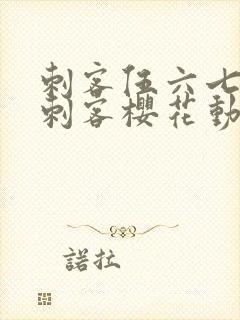 刺客伍六七
刺客櫻花動
諾拉